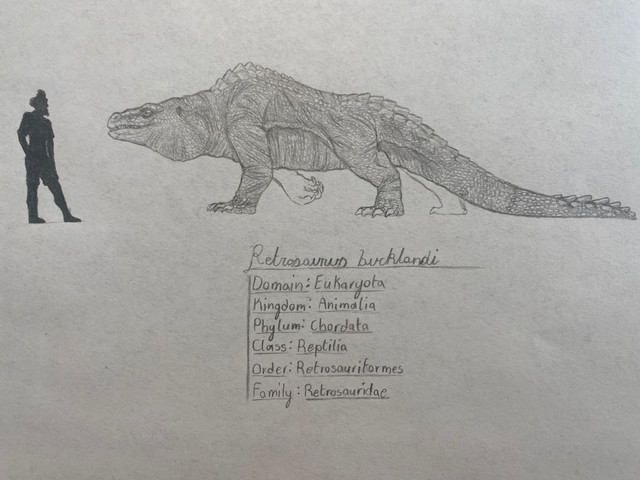 Retrosaurus bucklandi
Domain: Eukaryota
Kingdom: Animalia
Phylum: Chordata
Class: Reptilia
Order: Retrosauriformes
Family: Retrosauridae